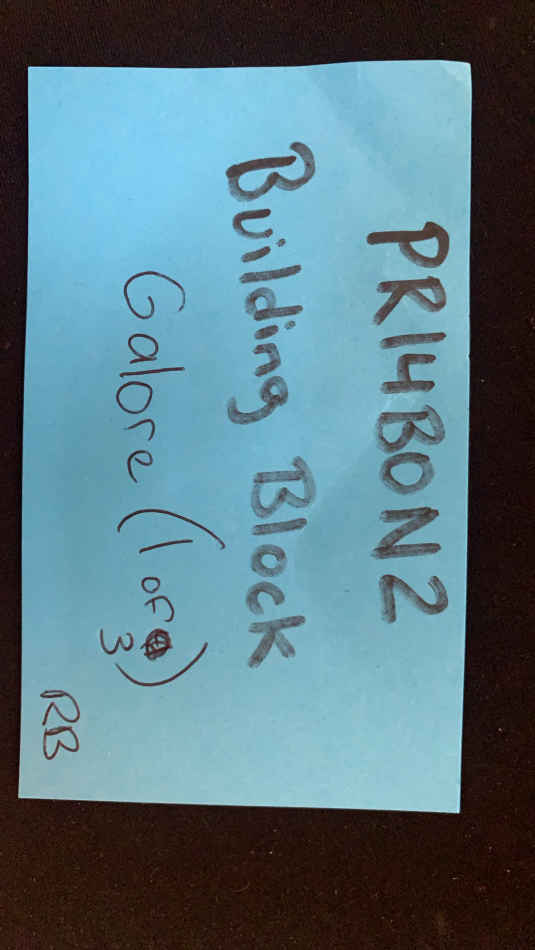 PR14BON2
Building Block
Galore (1 of 3)
RB